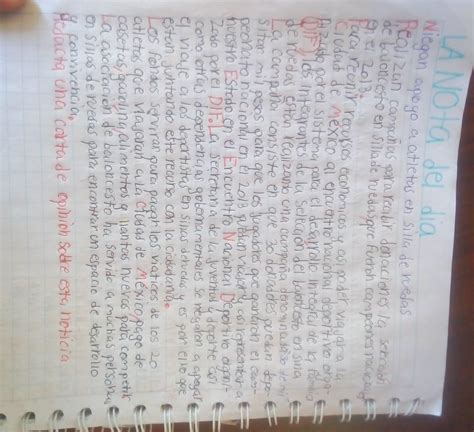 LA NOTA del día
Niegan apoyo a atletas en silla de ruedas
Realizan campañas para recibir donaciones la selección
de baloncesto en silla de ruedas que fueron campeones nacionales
en el 2013.
Para reunir recursos economicos y así poder viajar a la
Ciudad de México al encuentro nacional deportivo organi-
zado por el sistema para el desarrollo integral de la familia
(DIF) los integrantes de la selección del baloncesto en silla
de ruedas están realizando una campaña denominada
La campaña consiste en que 30 donadores puedan depo-
sitar mil pesos para que los jugadores que ganaron el cam-
peonato nacional en el 2013 puedan viajar y representar a
nuestro Estado en el Encuentro Nacional Deportivo organi-
zado por el DIF. La secretaria de la juventud y deporte así
como otras dependencias gubernamentales se negaron a apoyar
el viaje a los deportistas en sillas de ruedas y es por ello que
estan juntando este recurso con la ciudadania.
Los fondos serviran para pagar los viaticos de los 20
atletas que viajaran a la Ciudad de México, pago de
casetas, gasolina, alimentos y llantas nuevas para competir
La asociación de baloncesto ha servido a muchas personas
en sillas de ruedas para encontrar un espacio de desarrollo
y convivencia,
Redacta una carta de opinión sobre esta noticia